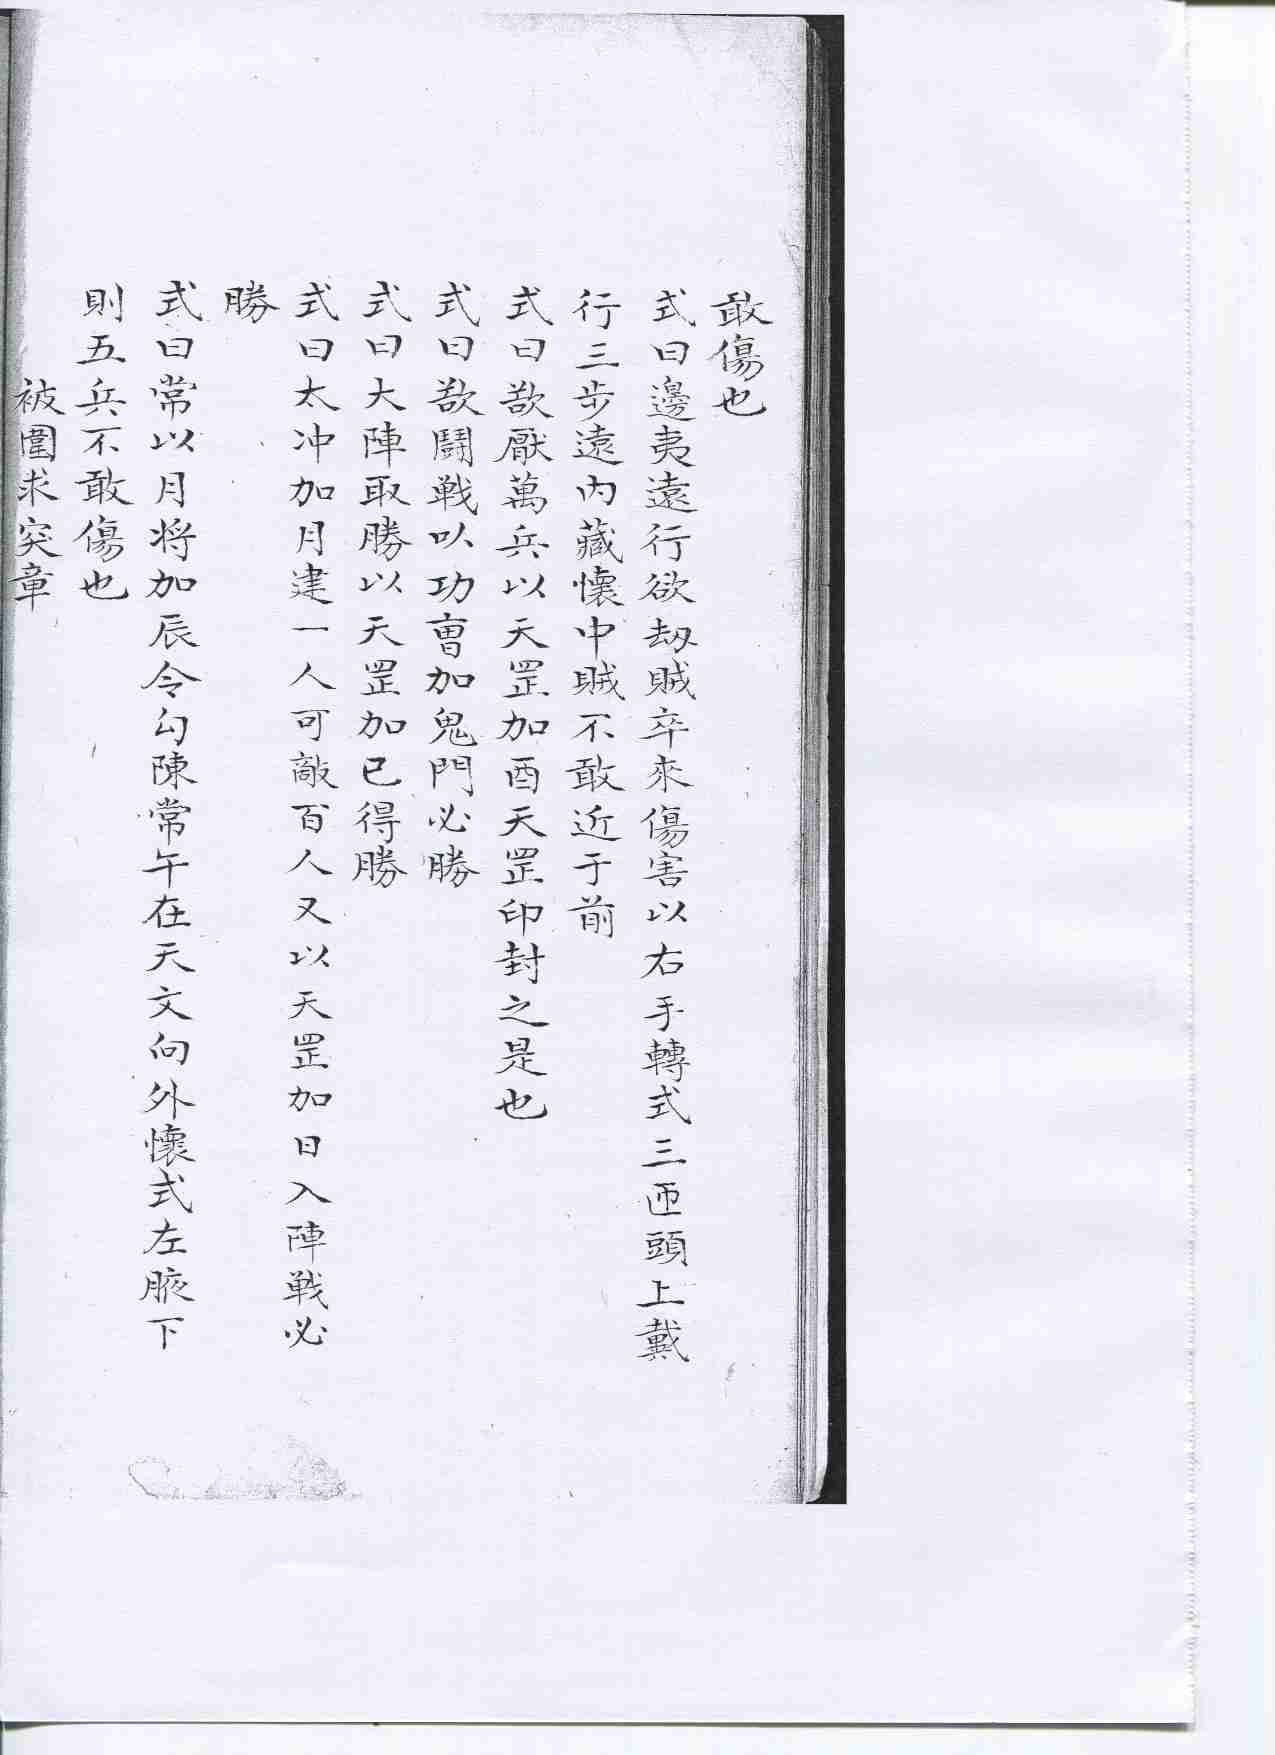 敢傷也
式曰邊夷遠行欲劫賊卒來傷害以右手轉式三匝頭上戴
行三步遠內藏懷中賊不敢近于前
式曰欲厭萬兵以天罡加酉天罡印封之是也
式曰欲鬪戦以功曺加鬼門必勝
式曰大陣取勝以天罡加已得勝
式曰太冲加月建一人可敵百人又以天罡加日入陣戦必
勝
式曰常以月将加辰令勾陳常午在天文向外懷式左腋下
則五兵不敢傷也
被圍求突章